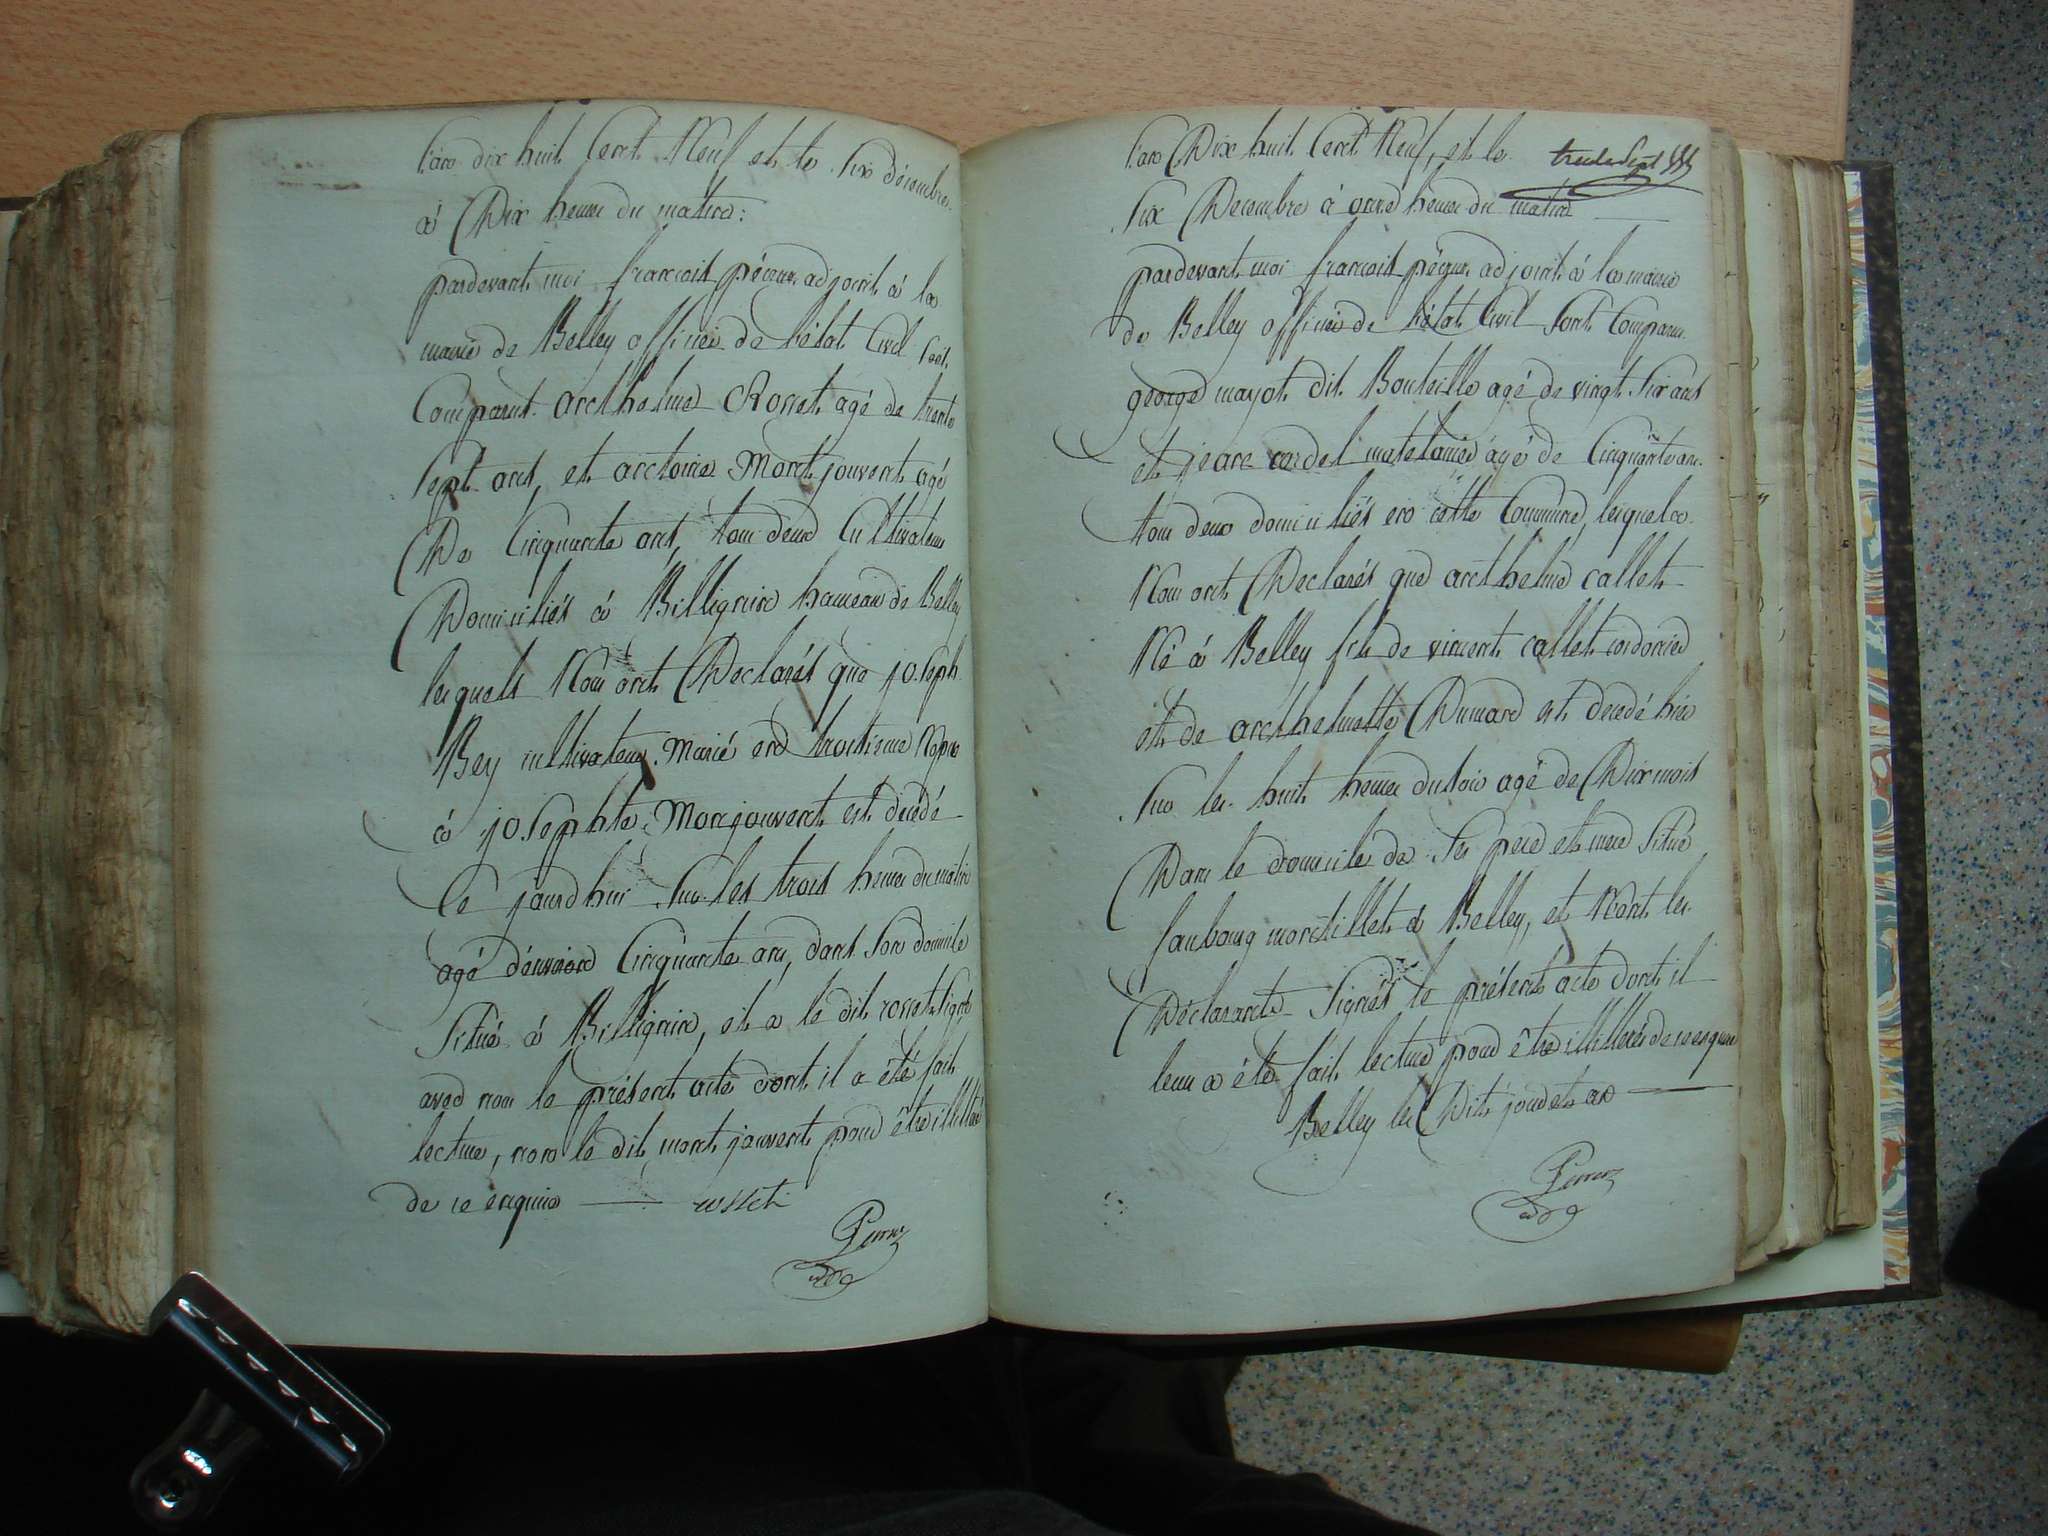 L'an dix huit Cent Neuf et le Six décembre
à Dix heures du matin:
pardevant moi françois adjoint à la
mairie de Belley officier de l'état Civil sont
Comparus anthelme Rosset agé de trente
Sept ans, et antoine Montjouvent agé
De Cinquante ans, tous deux Cultivateurs
Domiciliés à Billignin hameau de Belley
lesquels Nous ont Déclarés que joseph
Bey cultivateur Marié en troisieme
à josephte Monjouvent est décédé
Ce jourd'hui Sur les trois heures du matin
agé d'environ Cinquante ans, dans Son domicile
Situé à Billignin, et a le dit rosset signé
avec nous le présent acte dont il a été fait
lecture, non le dit montjouvent pour être illitéré
de ce enquis
L'an Dix huit Cent Neuf, et le trente Sept
Six Decembre à onze heures du matin
pardevant moi françois adjoint à la mairie
de Belley officier de l'état Civil Sont Comparus
george mayot dit Bouteille agé de vingt Six ans
et jean cordel matelassier agé de Cinquante ans
tous deux domiciliés en cette Commune, lesquels
Nous ont Déclarés que anthelme callet
Né à Belley fils de vincent callet cordonnier
et de anthelmette Dumard est décédé hier
Sur les huit heures du soir agé de Dix mois
Dans le domicile de Ses pere et mere Situé
faubourg montillet à Belley, et N'ont les
Déclarants Signés le présent acte dont il
leur a été fait lecture pour être illitérés de ce enquis
Belley les Dits jour et an